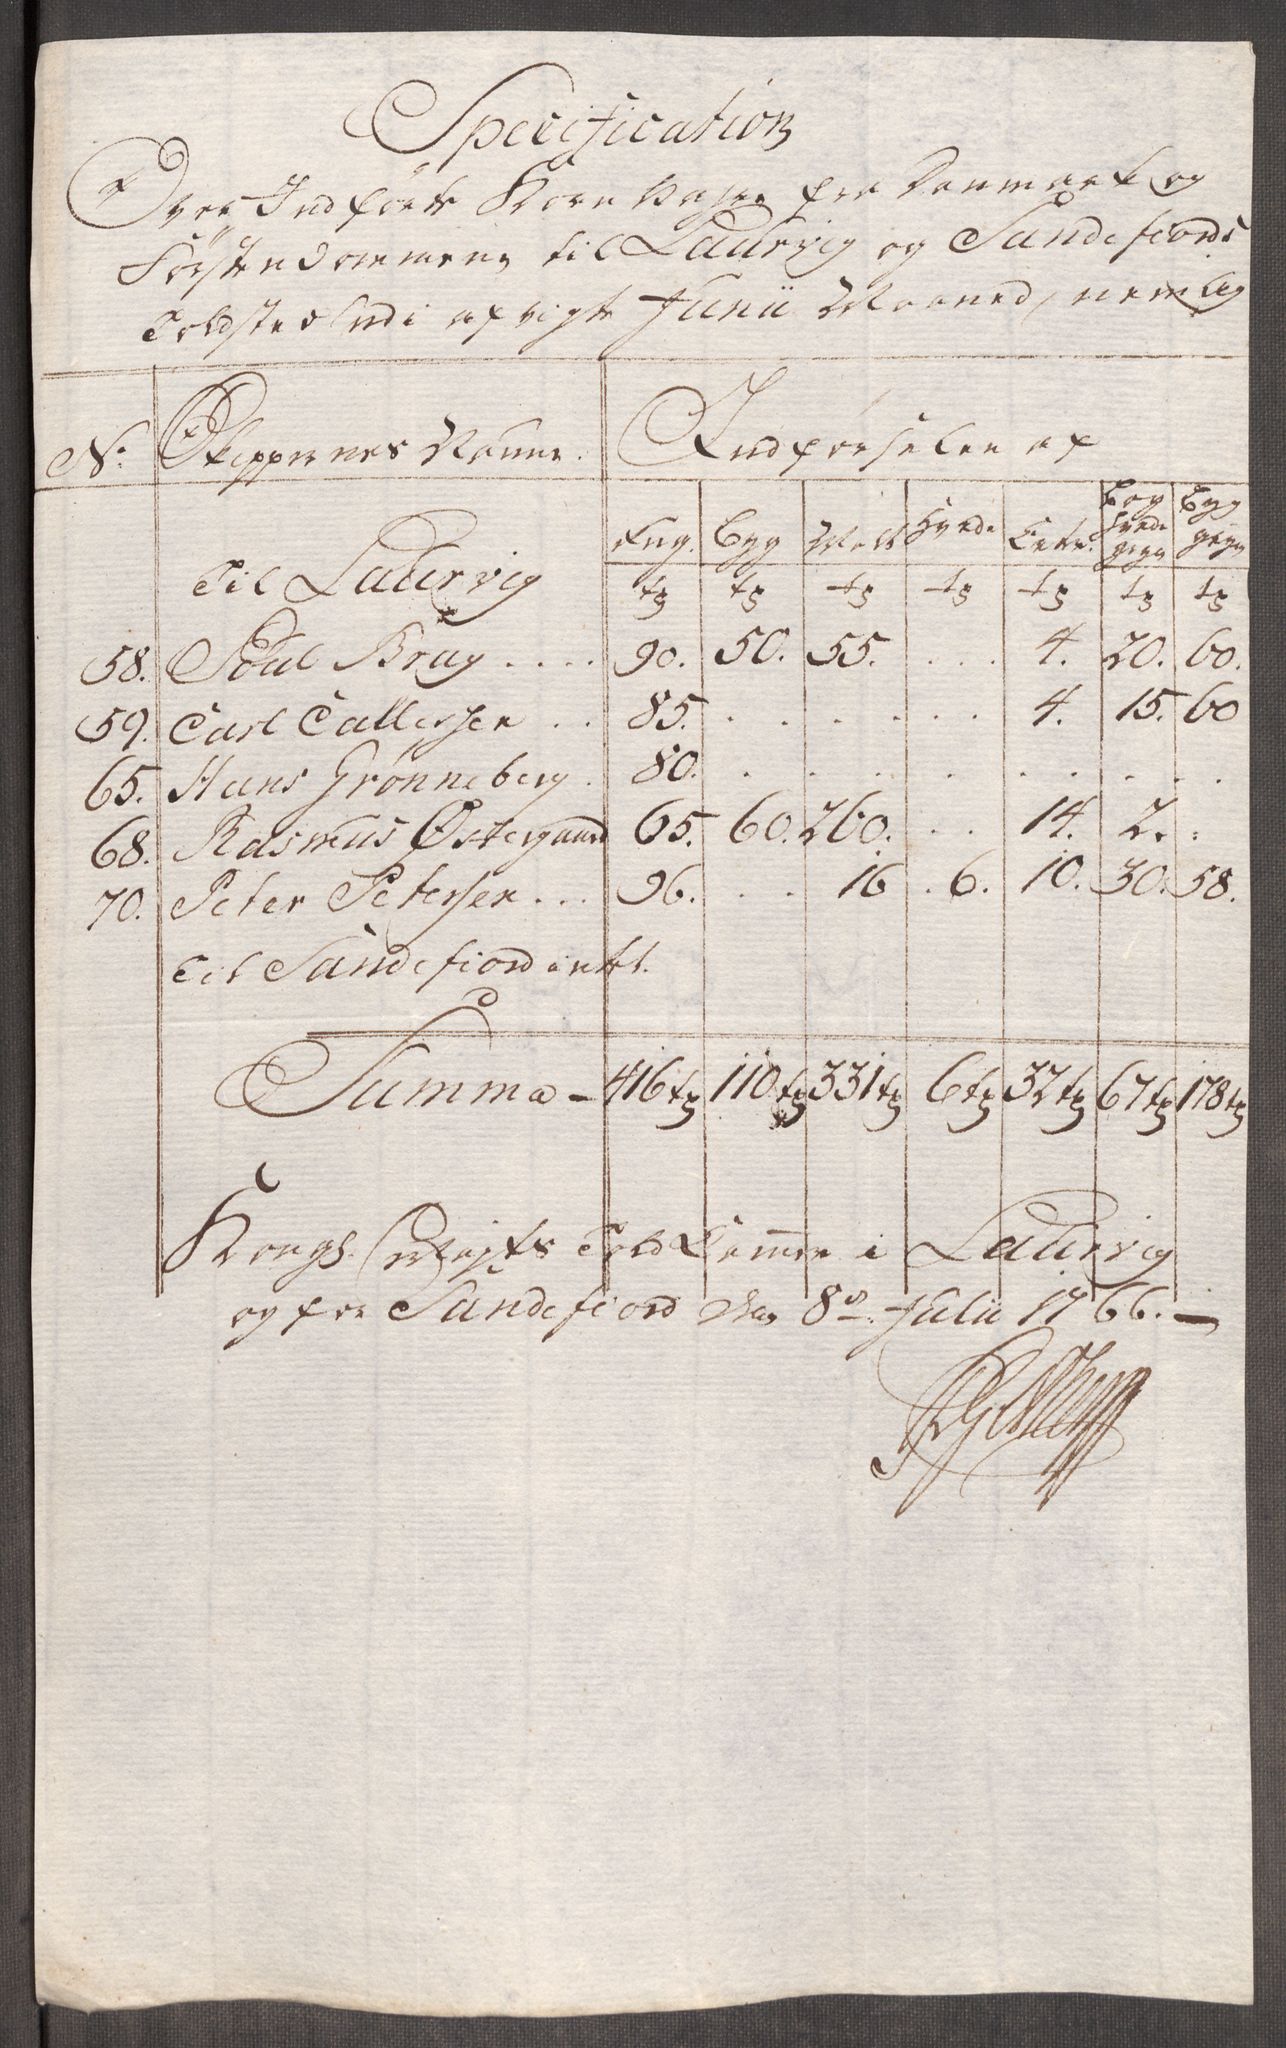 Specification
Over Indførte Korn Vahre fra Danmark og
Førstendommene til Laurvig og Sandefiords
Toldsted udi afvigte Junii Maaned, nemlig
No. Skippernes Nafne. Indførselen af
Rug. Byg Malt Hvede Erter. Bog hvede gryn Byg gryn
Til Laurvig tr tr tr tr tr tr tr
58. Poul Brag .... 90. 50. 55. ... 4. 20. 60.
59. Carl Callessen .. 85. ....... 4. 15. 60
65. Hans Grønneberg. 80. ........
68. Rasmus Østergaard 65. 60. 260. .. 14. 2. .
70. Peter Petersen ... 96. .. 16 . 6. 10. 30. 58.
Til Sandefiord intet.
Summa - 416 tr 110 tr 331 tr 6 tr 32 tr 67 tr 178 tr
Kongl. Mayts Told Cammer i Laurvig
og for Sandefiord den 8de Julii 1766. -